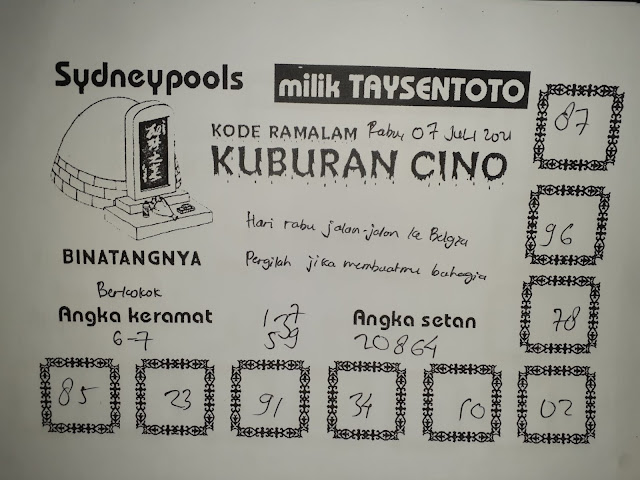 Sydneypools
milik TAYSENTOTO
87
KODE RAMALAM Rabu, 07 Juli 2021
KUBURAN CINO
Hari rabu jalan-jalan ke Belgia
96
BINATANGNYA
Pergilah jika membuatmu bahagia
Berkokok
78
Angka keramat
137
Angka setan
6-7
559
20864
85
23
91
34
10
02